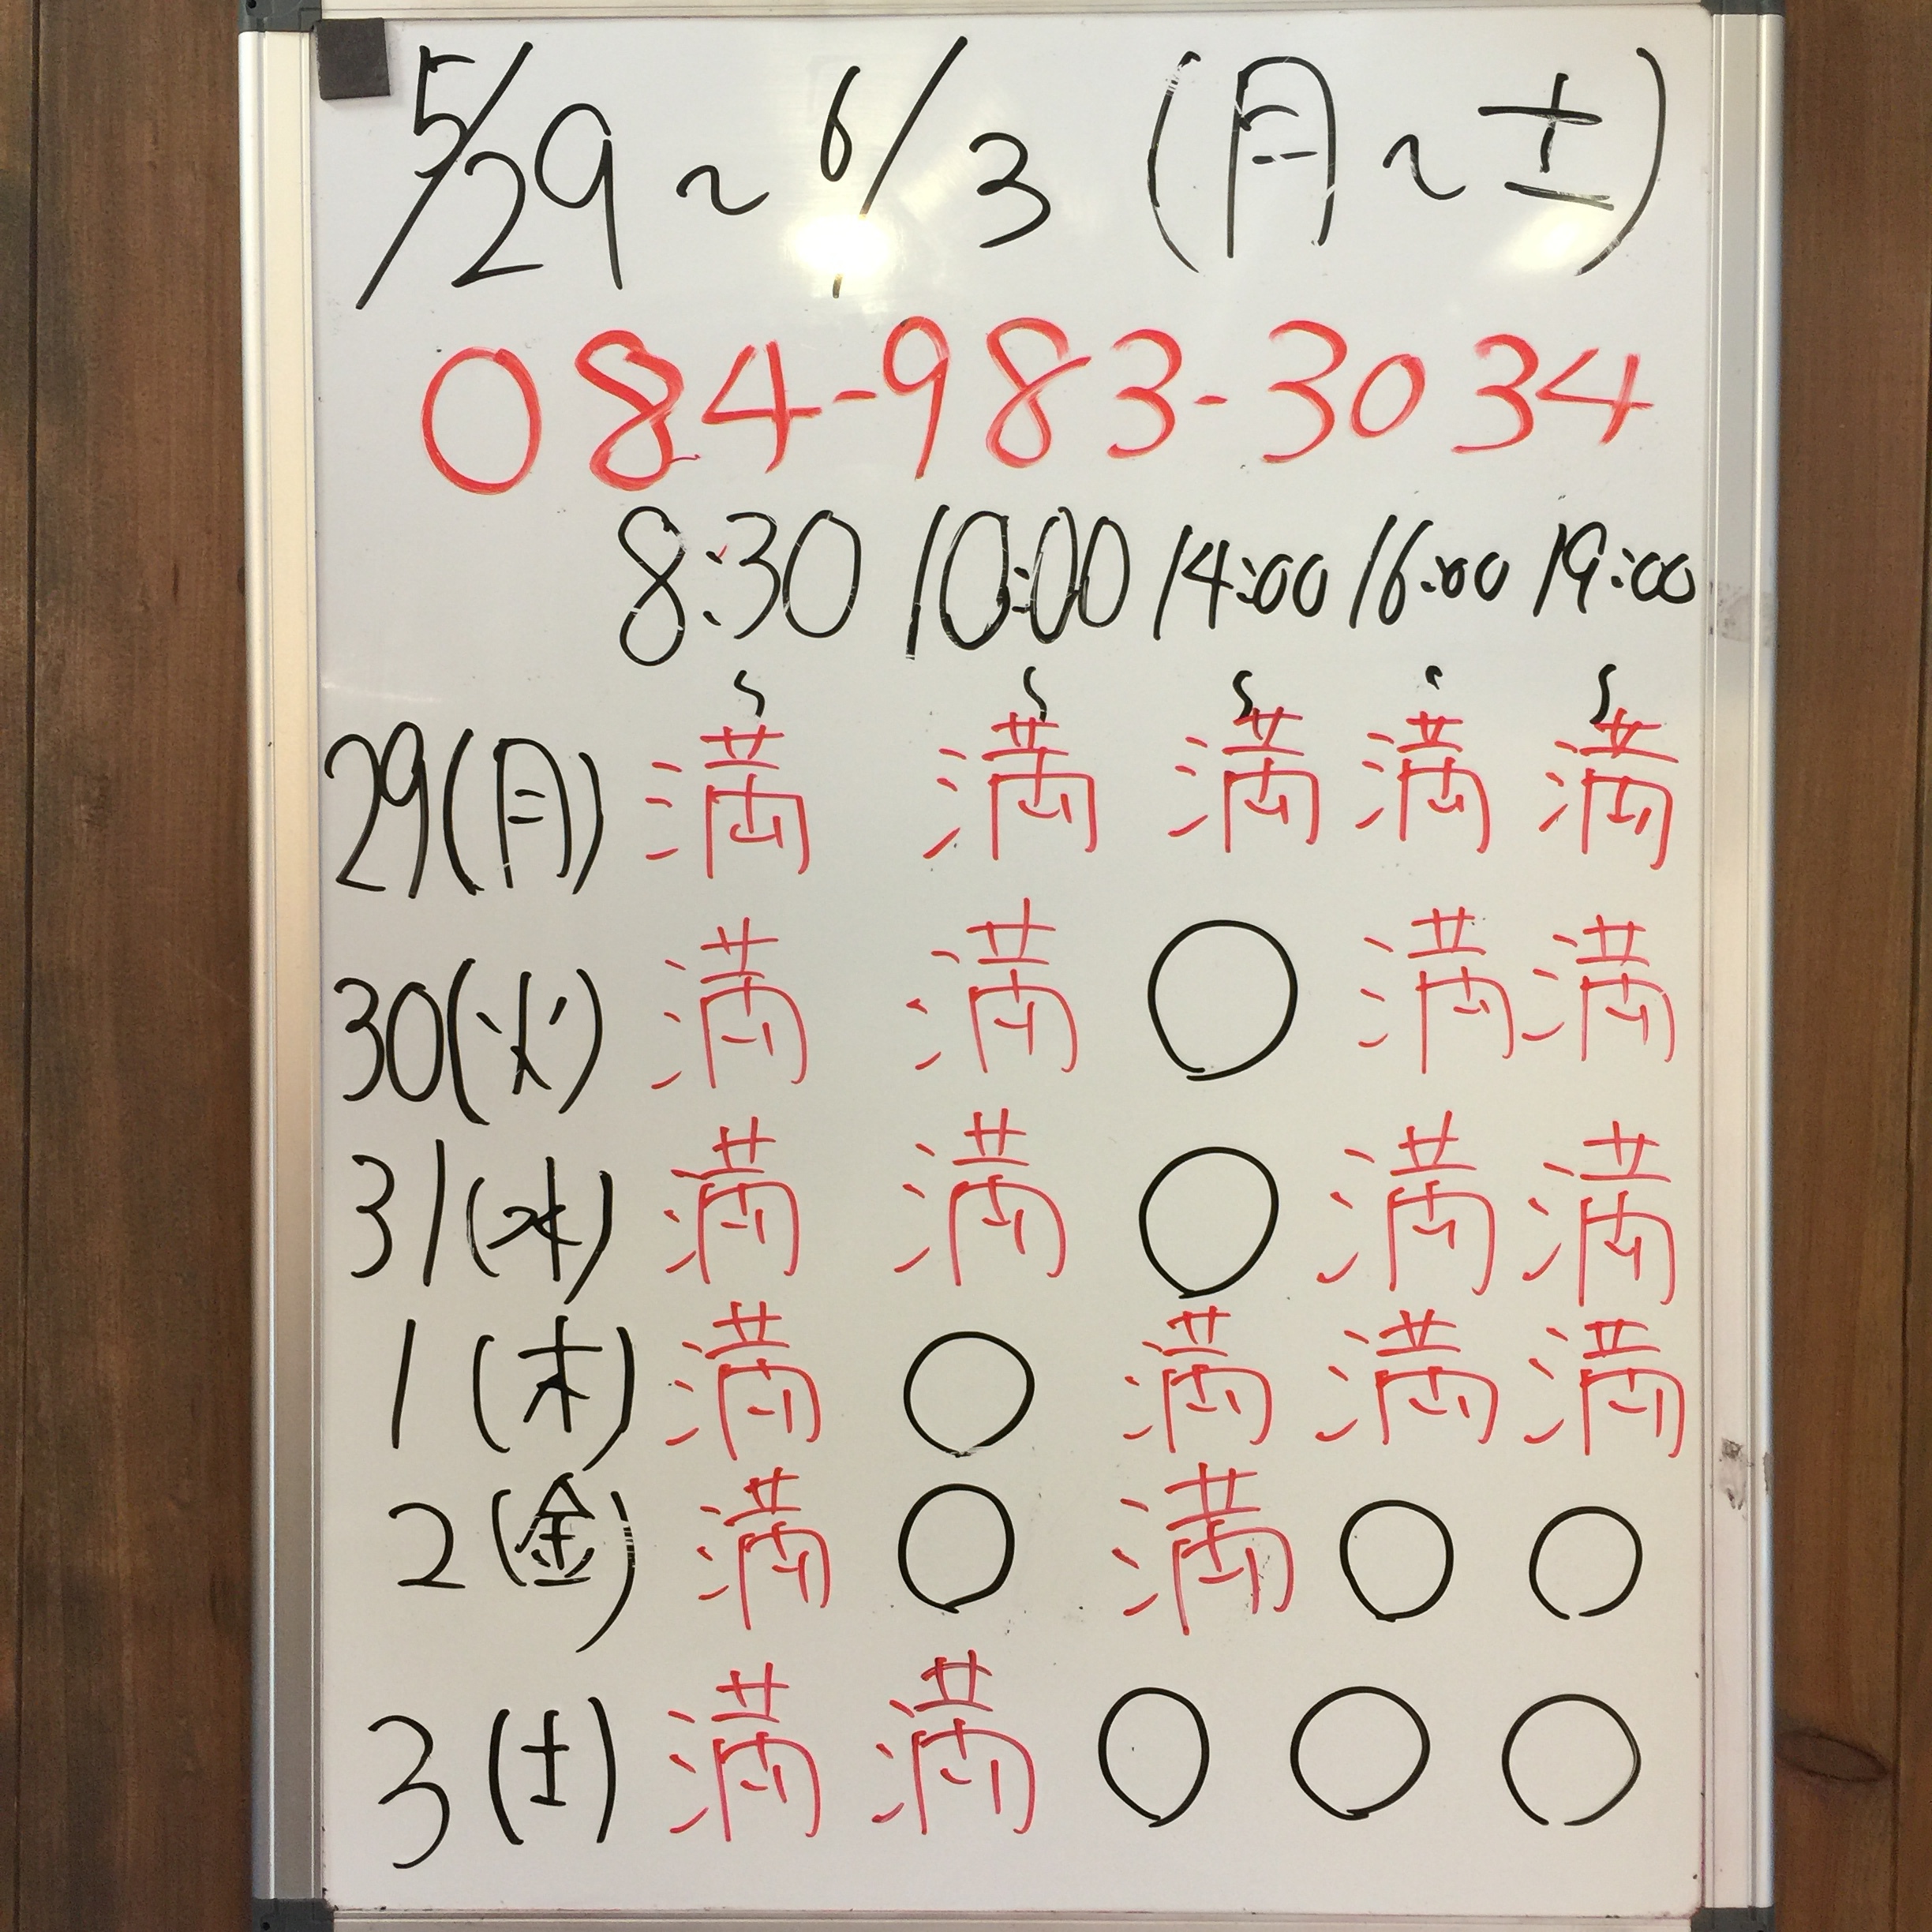 5/29 ~ 6/3 (月~土)
084-983-3034
8:30 10:00 14:00 16:00 19:00
29(月) 満 満 満 満 満
30(火) 満 満 ○ 満 満
31(水) 満 満 ○ 満 満
1(木) 満 ○ 満 満 満
2(金) 満 ○ 満 ○ ○
3(土) 満 満 ○ ○ ○